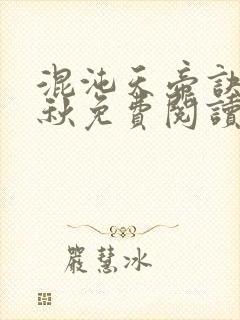 混沌天帝訣
秋免費閱讀
嚴慧冰